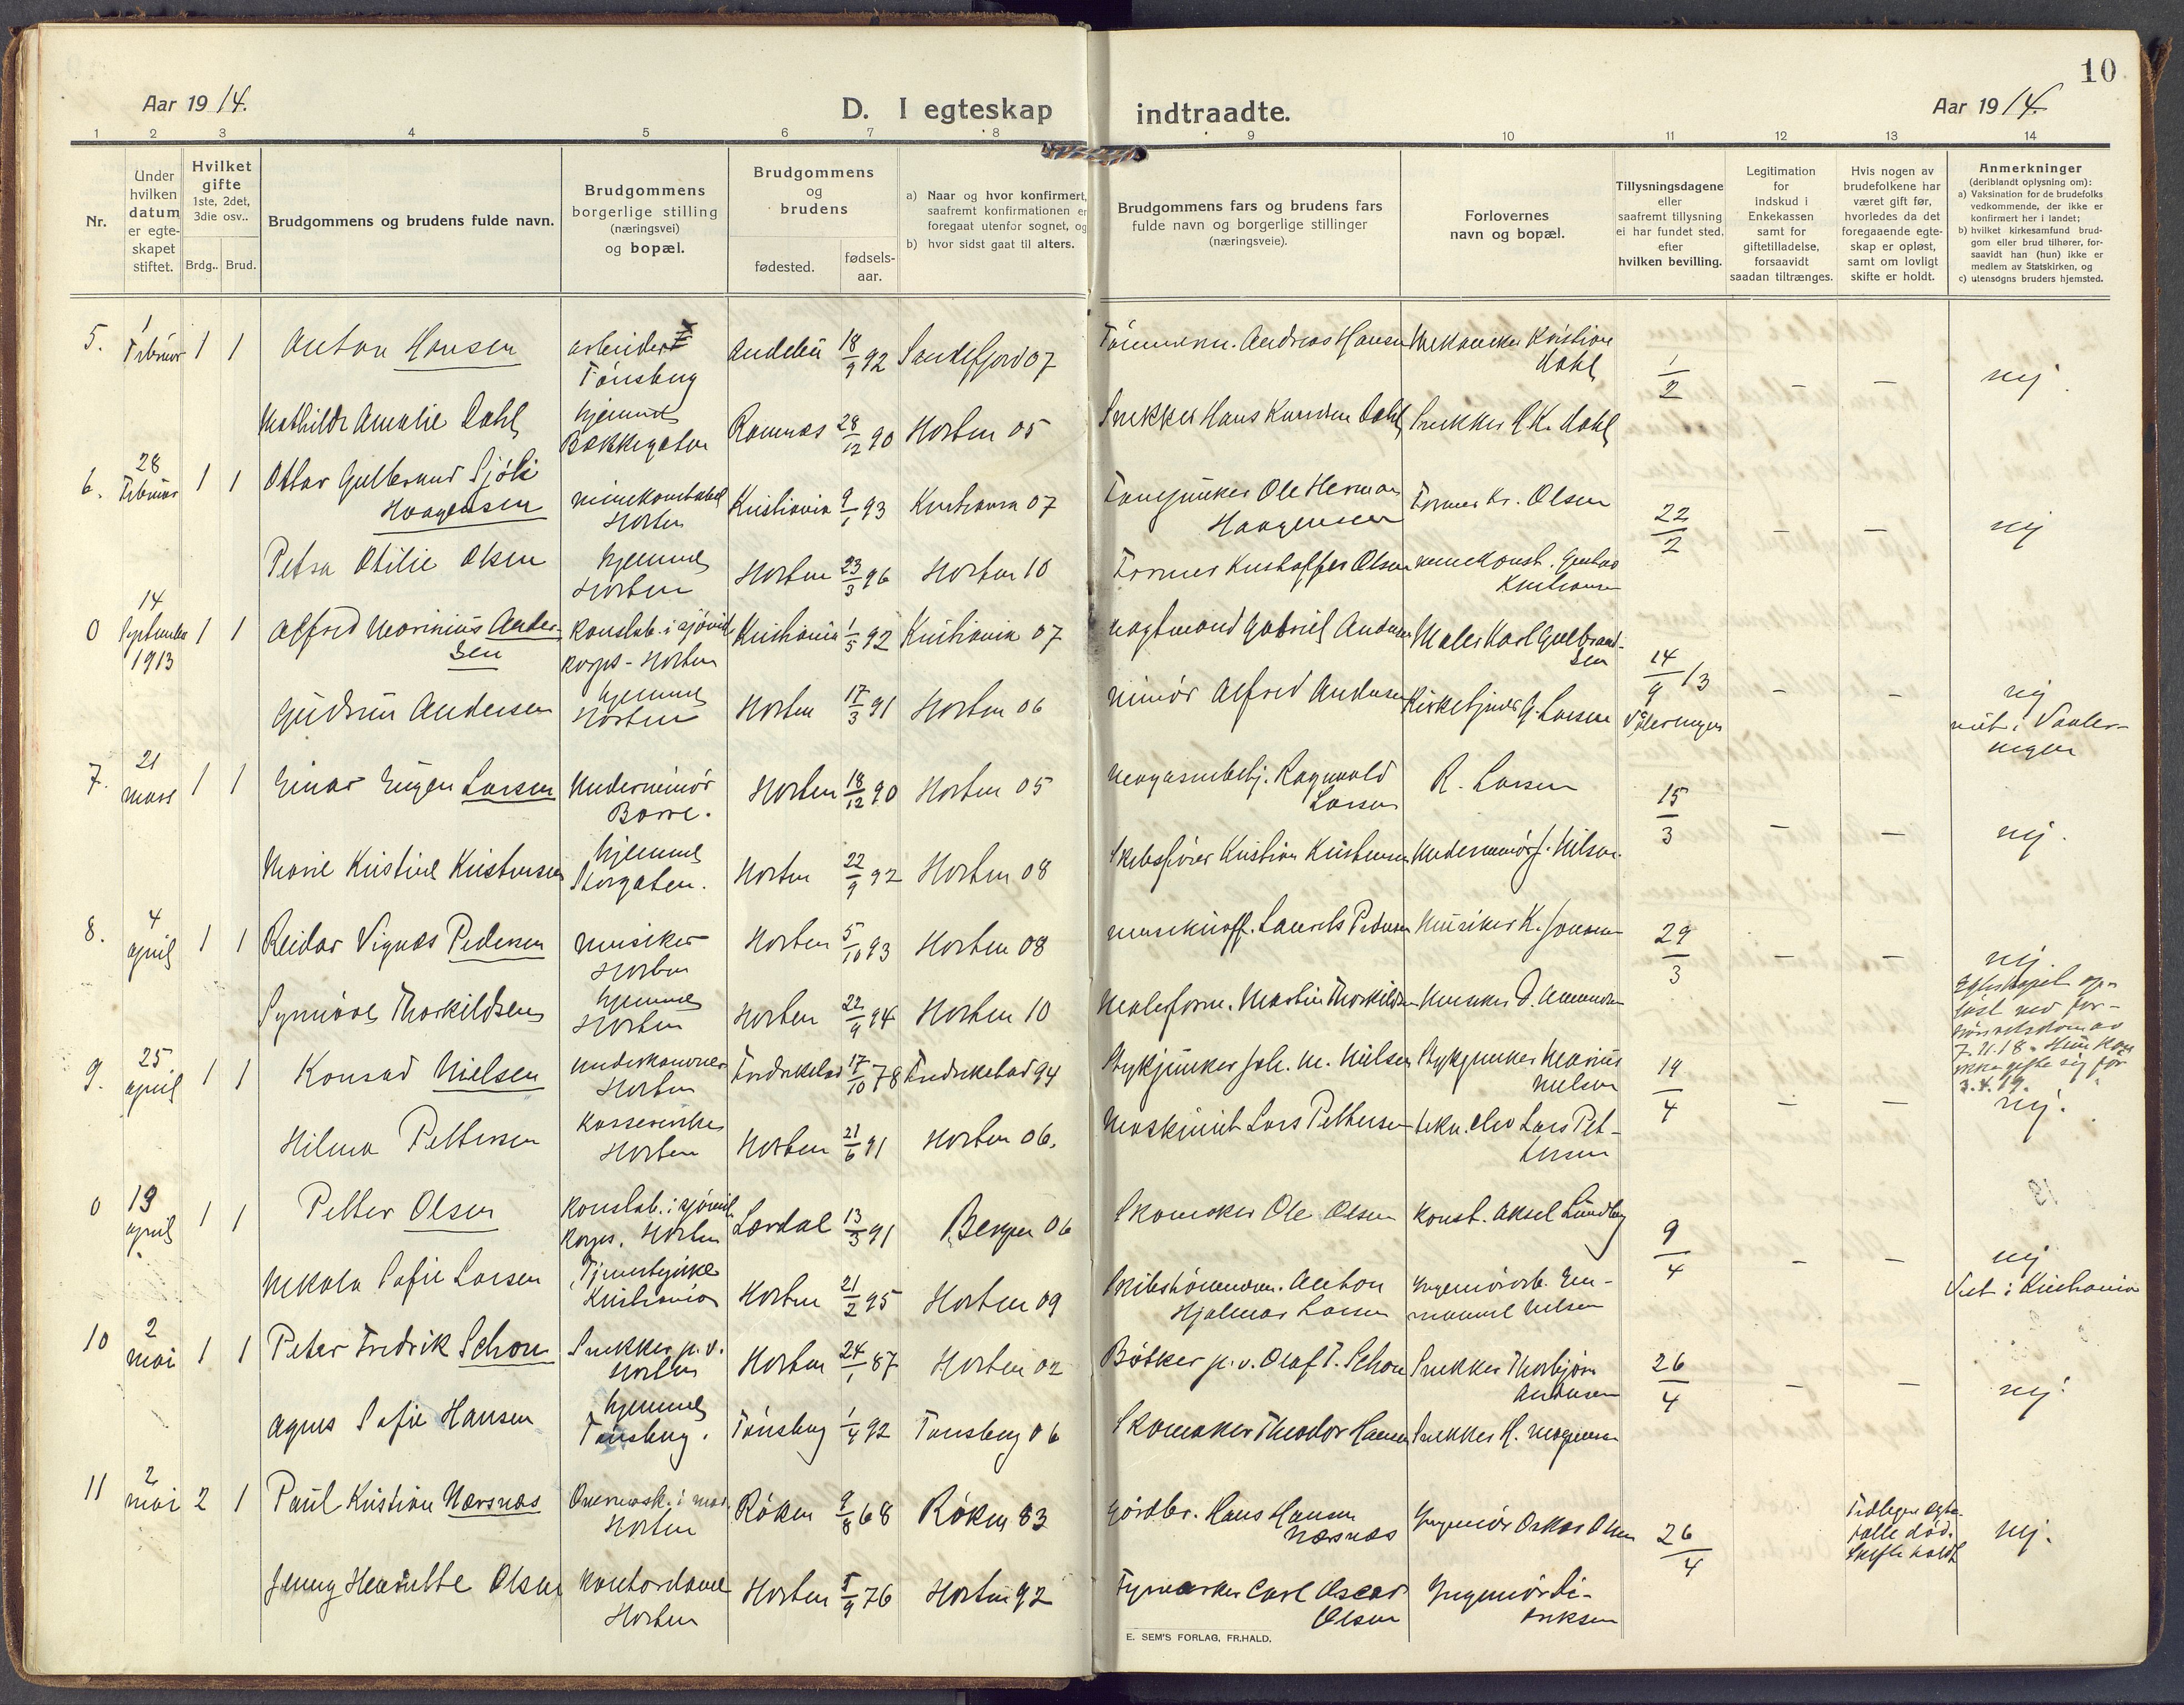 10
Aar 1914.
D. I egteskap indtraadte.
Aar 1914.
1 2 3 4 5 6 7 8 9 10 11 12 13 14
Nr.
Under hvilken datum er egte-skapet stiftet.
Hvilket gifte 1ste, 2det, 3die osv..
Brdg.. Brud.
Brudgommens og brudens fulde navn.
Brudgommens borgerlige stilling (næringsvei) og bopæl.
Brudgommens og brudens
fødested. fødsels-aar.
a) Naar og hvor konfirmert, saafremt konfirmationen er foregaat utenfor sognet, og
b) hvor sidst gaat til alters.
Brudgommens fars og brudens fars fulde navn og borgerlige stillinger (næringsveie).
Forlovernes navn og bopæl.
Tillysningsdagene eller saafremt tillysning ei har fundet sted, efter hvilken bevilling.
Legitimation for indskud i Enkekassen samt for giftetilladelse, forsaavidt saadan tiltrænges.
Hvis nogen av brudefolkene har været gift før, hvorledes da det foregaaende egte-skap er opløst, samt om lovligt skifte er holdt.
Anmerkninger (deriblandt oplysning om):
a) Vaksination for de brudefolks vedkommende, der ikke er konfirmert her i landet;
b) hvilket kirkesamfund brud-gom eller brud tilhører, for-saavidt han (hun) ikke er medlem av Statskirken, og
c) utensogns bruders hjemsted.
5. 1 Februar 1 1 Anton Hansen arbeider Tønsberg Andebu 18/9 92 Sandefjord 07 Tømmerm. Andreas Hansen Mekaniker Kristian Dahl 1/2 – – nej.
Mathilde Amalie Dahl hjemme Bakkegaten Ramnæs 28/12 90 Horten 05 Snekker Hans Knudsen Dahl Snekker H. K. Dahl
6. 28 Februar 1 1 Ottar Gulbrand Sjøli Haagensen minekonstabel Horten Kristiania 9/1 93 Kristiania 07 Fanejunker Ole Herman Haagensen Former Kr. Olsen 22/2 – – nej
Petra Otilie Olsen hjemme Horten Horten 23/3 96 Horten 10 Former Kristoffer Olsen minekonst. Gustav Kristiansen
0 14 September 1913 1 1 Alfred Marinius Andersen Konstab. i sjømil. korps - Horten Kristiania 1/5 92 Kristiania 07 Vagtmand Gabriel Andersen Maler Karl Gulbrandsen 14/9 13 Vålerengen – – nej viet i Vaalerengen
Gudrun Andersen hjemme Horten Horten 17/3 91 Horten 06 minør Alfred Andersen Kirketjener G. Larsen
7. 21 mars 1 1 Einar Eugen Larsen Underminør Borre. Horten 18/12 90 Horten 05 Magasinbetj. Ragnvald Larsen R. Larsen 15/3 – – nej.
Marie Kristine Kristensen hjemme Storgaten. Horten 22/9 92 Horten 08 Skibsfører Kristian Kristensen Underminør J. Nilsen
8. 4 april 1 1 Reidar Vignæs Pedersen musiker Horten Horten 5/10 93 Horten 08 musikuoff. Laurits Pedersen Musiker K. Jonassen 29/3 – – nej.
Synnøve Thorkildsen hjemme Horten Horten 22/9 94 Horten 10 Malerform. Martin Thorkildsen Musiker O. Amundsen
Egteskapet op-
løst ved for-
7.11.18. Hun kan
ikke gifte sig før
3.4.19.
9. 25 april 1 1 Konrad Nielsen underkanoner Horten Fredrikstad 17/10 78 Fredrikstad 94 Stykjunker Joh. M. Nielsen Stykjunker Marius Nielsen 19/4 – – nej.
Hilma Pettersen Kassererske Horten Horten 21/6 91 Horten 06. Maskinist Lars Pettersen tekn. elev Lars Pettersen
0 19 april 1 1 Petter Olsen Konstab. i sjømil. korps. Horten Lærdal 13/3 91 Bergen 06 Skomaker Ole Olsen Konst. Aksel Lundby 9/4 – – nej Viet i Kristiania
Nikola Sofie Larsen Tjenestepike Kristiania Horten 21/2 95 Horten 09 Skibstømmerm. Anton Hjalmar Larsen Ingeniørarb. Emmanuel Nilsen
10 2 mai 1 1 Peter Fredrik Schou Snekker p. v. Horten Horten 24/1 87 Horten 02 Bøtker p. v. Olaf T. Schou Snekker Thorbjørn Andersen 26/4 – – nej.
Agnes Sofie Hansen hjemme Tønsberg. Tønsberg 1/4 92 Tønsberg 06 Skomaker Theodor Hansen Snekker H. Mogensen
11 2 mai 2 1 Paul Kristian Nærsnæs Horten Røken 9/8 68 Røken 83 Gårdbr. Hans Hansen Nærsnæs Ingeniør Oskar Olsen 26/4 Tidligere egtefælle død. Skifte holdt nej.
Jenny Henriette Olsen Kontordame Horten Horten 5/9 76 Horten 92 Fyrverker Carl Oscar Olsen Ingeniør Eriksen
E. SEM'S FORLAG, FR.HALD.